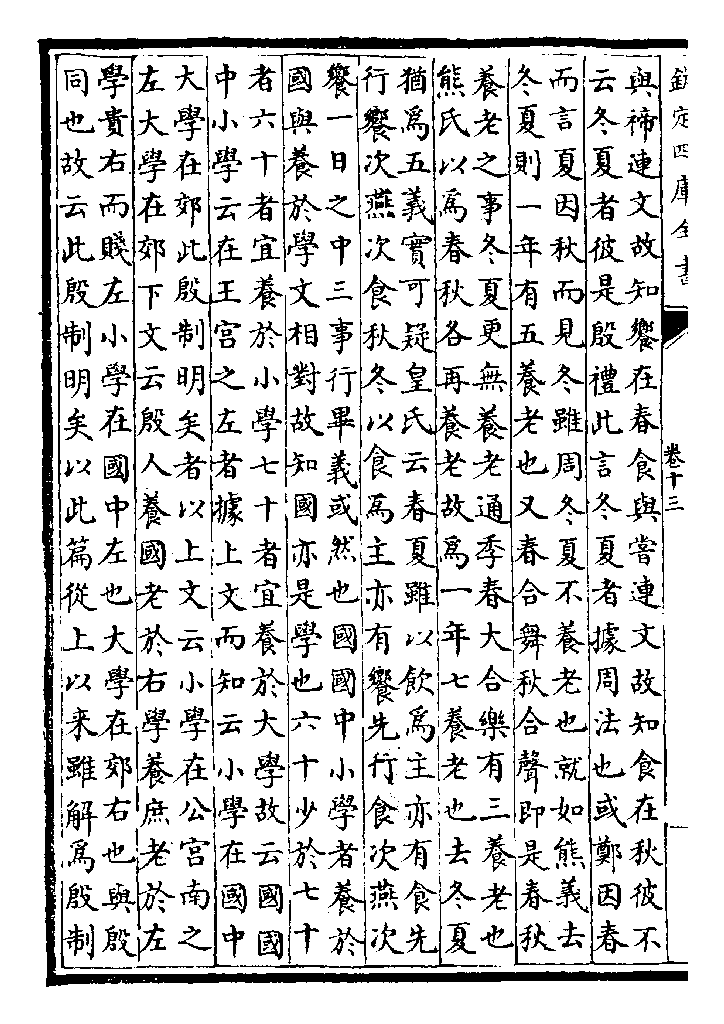 欽定四庫全書 卷十三
與禘連文故知饗在春食與嘗連文故知食在秋彼不
云冬夏者彼是殷禮此言冬夏者據周法也或鄭因春
而言夏因秋而見冬雖周冬夏不養老也就如熊義去
冬夏則一年有五養老也又春合舞秋合聲即是春秋
養老之事冬夏更無養老通季春大合樂有三養老也
熊氏以為春秋各再養老故為一年七養老也去冬夏
猶為五義實可疑皇氏云春夏雖以飲為主亦有食先
行饗次燕次食秋冬以食為主亦有饗先行食次燕次
饗一日之中三事行畢義或然也國國中小學者養於
國與養於學文相對故知國亦是學也六十少於七十
者六十者宜養於小學七十者宜養於大學故云國國
中小學云在王宮之左者據上文而知云小學在國中
大學在郊此殷制明矣者以上文云小學在公宮南之
左大學在郊下文云殷人養國老於右學養庶老於左
學貴右而賤左小學在國中左也大學在郊右也與殷
同也故云此殷制明矣以此篇從上以來雖解為殷制